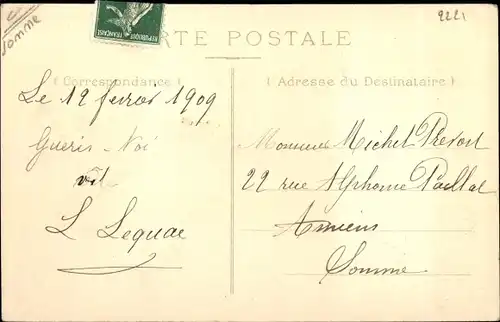 Somme
2221
REPUBLIQUE FRANÇAISE
CARTE POSTALE
(Correspondance)
(Adresse du Destinataire)
Le 12 fevrier 1909
Gueris-Toi
vit
L Lequae
Monsieur Michel Prevost
22 rue Alphonse Paillat
Amiens
Somme